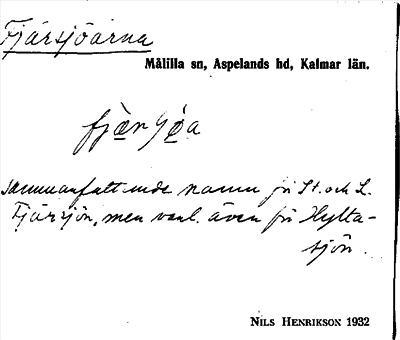 Fjärsjöarna
Målilla sn, Aspelands hd, Kalmar län.
sammanfattande namn på St. och L.
Fjärsjön, men vanl. även på Hylta-
sjön.
NILS HENRIKSON 1932